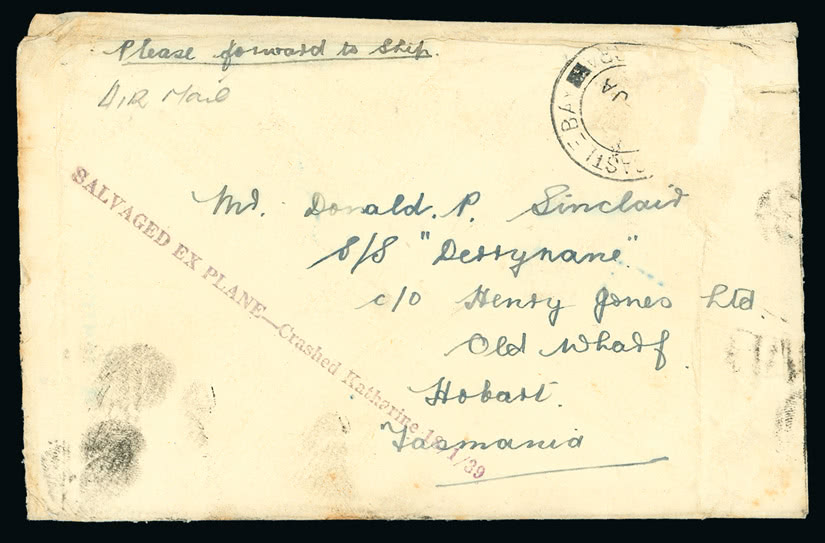 Please forward to Ship.
AIR Mail
CASTLEBAY
BA
JA
Mr. Donald. P. Sinclair
S/S "Derrynane"
c/o Henry Jones Ltd.
Old Wharf
Hobart.
Tasmania
SALVAGED EX PLANE—Crashed Katherine 18/1/39